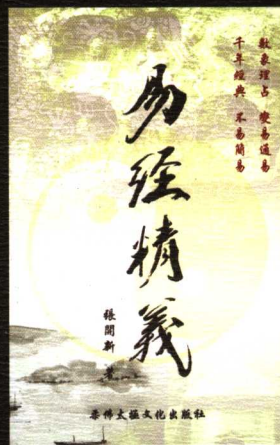 數象理占 變易通易
千年經典 不易簡易
易经精義
張闊新 著
崇佛太極文化出版社